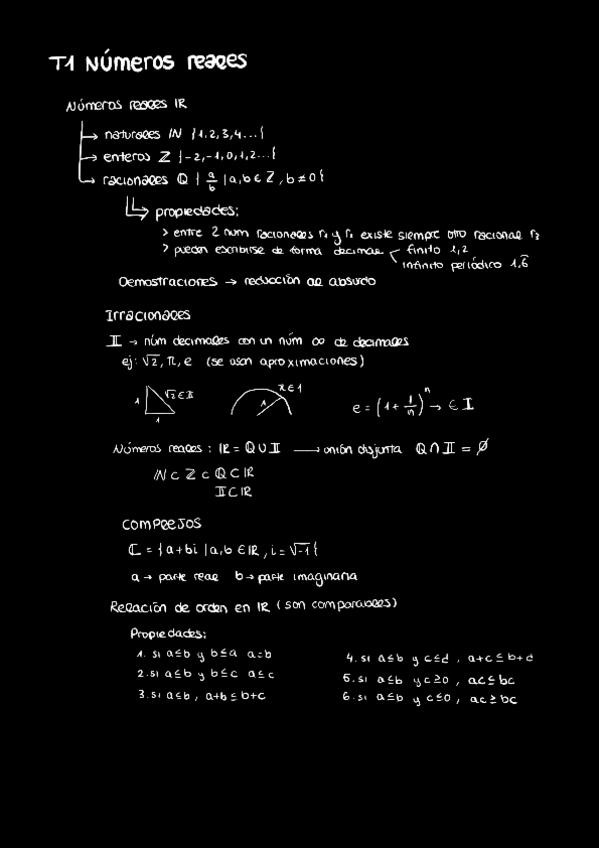 T1 Números reales
Números reales IR
→ naturales IN {1,2,3,4...{
→ enteros Z {-2,-1,0,1,2...{
→ racionales Q { a/b | a,b ∈ Z, b≠0{
→ propiedades:
> entre 2 num racionales r₁ y r₂ existe siempre otro racional r₃
> pueden escribirse de forma decimal finito 1,2
infinito periódico 1,6̂
Demostraciones → reducción al absurdo
Irracionales
𝕀 → núm decimales con un núm ∞ de decimales
ej: √2, π, e (se usan aproximaciones)
1 √2 ∈ 𝕀 1
1 π ∈ 1
e = (1 + 1/n)ⁿ → ∈ 𝕀
Números reales: IR = Q ∪ 𝕀 → unión disjunta Q ∩ 𝕀 = ∅
IN ⊂ Z ⊂ Q ⊂ IR
𝕀 ⊂ IR
Complejos
ℂ = {a+bi | a,b ∈ IR, i = √-1{
a → parte real b → parte imaginaria
Relación de orden en IR (son comparables)
Propiedades:
1. si a≤b y b≤a a=b
2. si a≤b y b≤c a≤c
3. si a≤b, a+b ≤ b+c
4. si a≤b y c≤d, a+c ≤ b+d
5. si a≤b y c≥0, ac ≤ bc
6. si a≤b y c≤0, ac ≥ bc